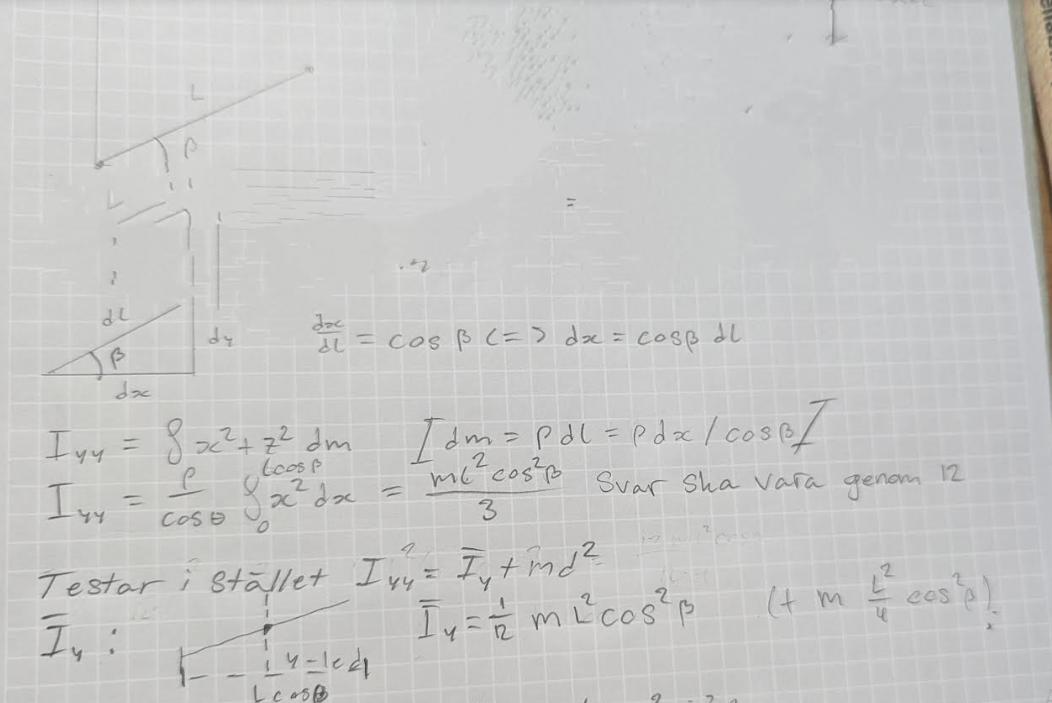 L
β
L
dl
β
dy
dx
dx/dl = cos β <=> dx = cosβ dl
I_yy = ∫ x² + z² dm [dm = ρ dl = ρ dx / cosβ]
I_yy = ρ/cosθ ∫₀^(Lcosβ) x² dx = mL²cos²β / 3 Svar ska vara genom 12
Testar i stället I_yy ?= Ī_y + md²
Ī_y : Ī_y = 1/12 mL²cos²β (+ m L²/4 cos²β)?
y-led
L cosβ